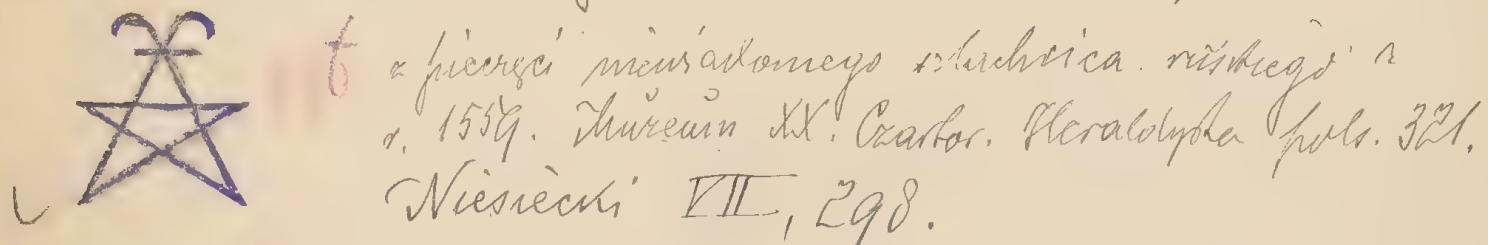 z pieczęci niewiadomego szlachcica ruskiego z
r. 1559. Muzeum XX. Czartor. Heraldyka pols. 321.
Niesiecki VII, 298.